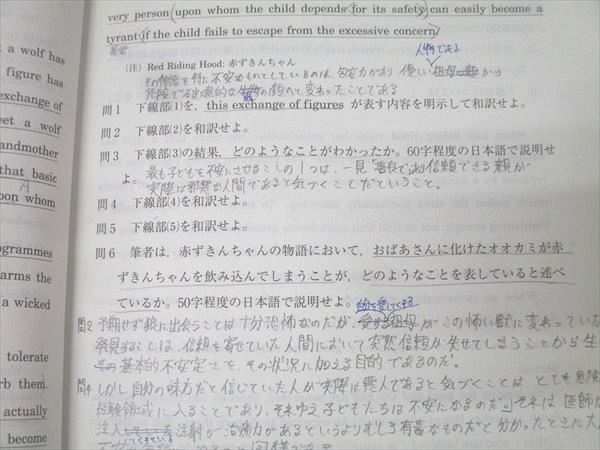 very person upon whom the child depends for its safety can easily become a
tyrant if the child fails to escape from the excessive concern.
（注） Red Riding Hood: 赤ずきんちゃん
人物である
優しい祖母
から
問1　下線部(1)を，this exchange of figures が表す内容を明示して和訳せよ。
問2　下線部(2)を和訳せよ。
問3　下線部(3)の結果，どのようなことがわかったか。60字程度の日本語で説明せ
よ。
最も子どもを不安にさせることの1つは、一見善良であり信頼できる親が
実際は邪悪な人間であると気づくことだということ。
問4　下線部(4)を和訳せよ。
問5　下線部(5)を和訳せよ。
問6　筆者は，赤ずきんちゃんの物語において，おばあさんに化けたオオカミが赤
ずきんちゃんを飲み込んでしまうことが，どのようなことを表していると述べ
ているか。50字程度の日本語で説明せよ。
問2 予期せず狼に出会うことは十分恐怖なのだが、愛する祖母がこの怖い獣に変わっていた
発見することは、信頼を寄せていた人間において突然信頼が失せてしまうことから生
基本的不安定さを、その状況に加える目的であるのだ。
問4 しかし自分の味方だと信じていた人が実際は悪人であると気づくことは とても危険
経験領域に入ることであり、それゆえ子どもたちは不安になるのだ。それは 医師が
注入 注射が治療力があるというよりむしろ有害なものだと分かったときに大
a wolf has
figure has
exchange of
eet a wolf
andmother
that basic
pon whom
ogrammes
arms the
a wicked
tolerate
rb them.
actually
become